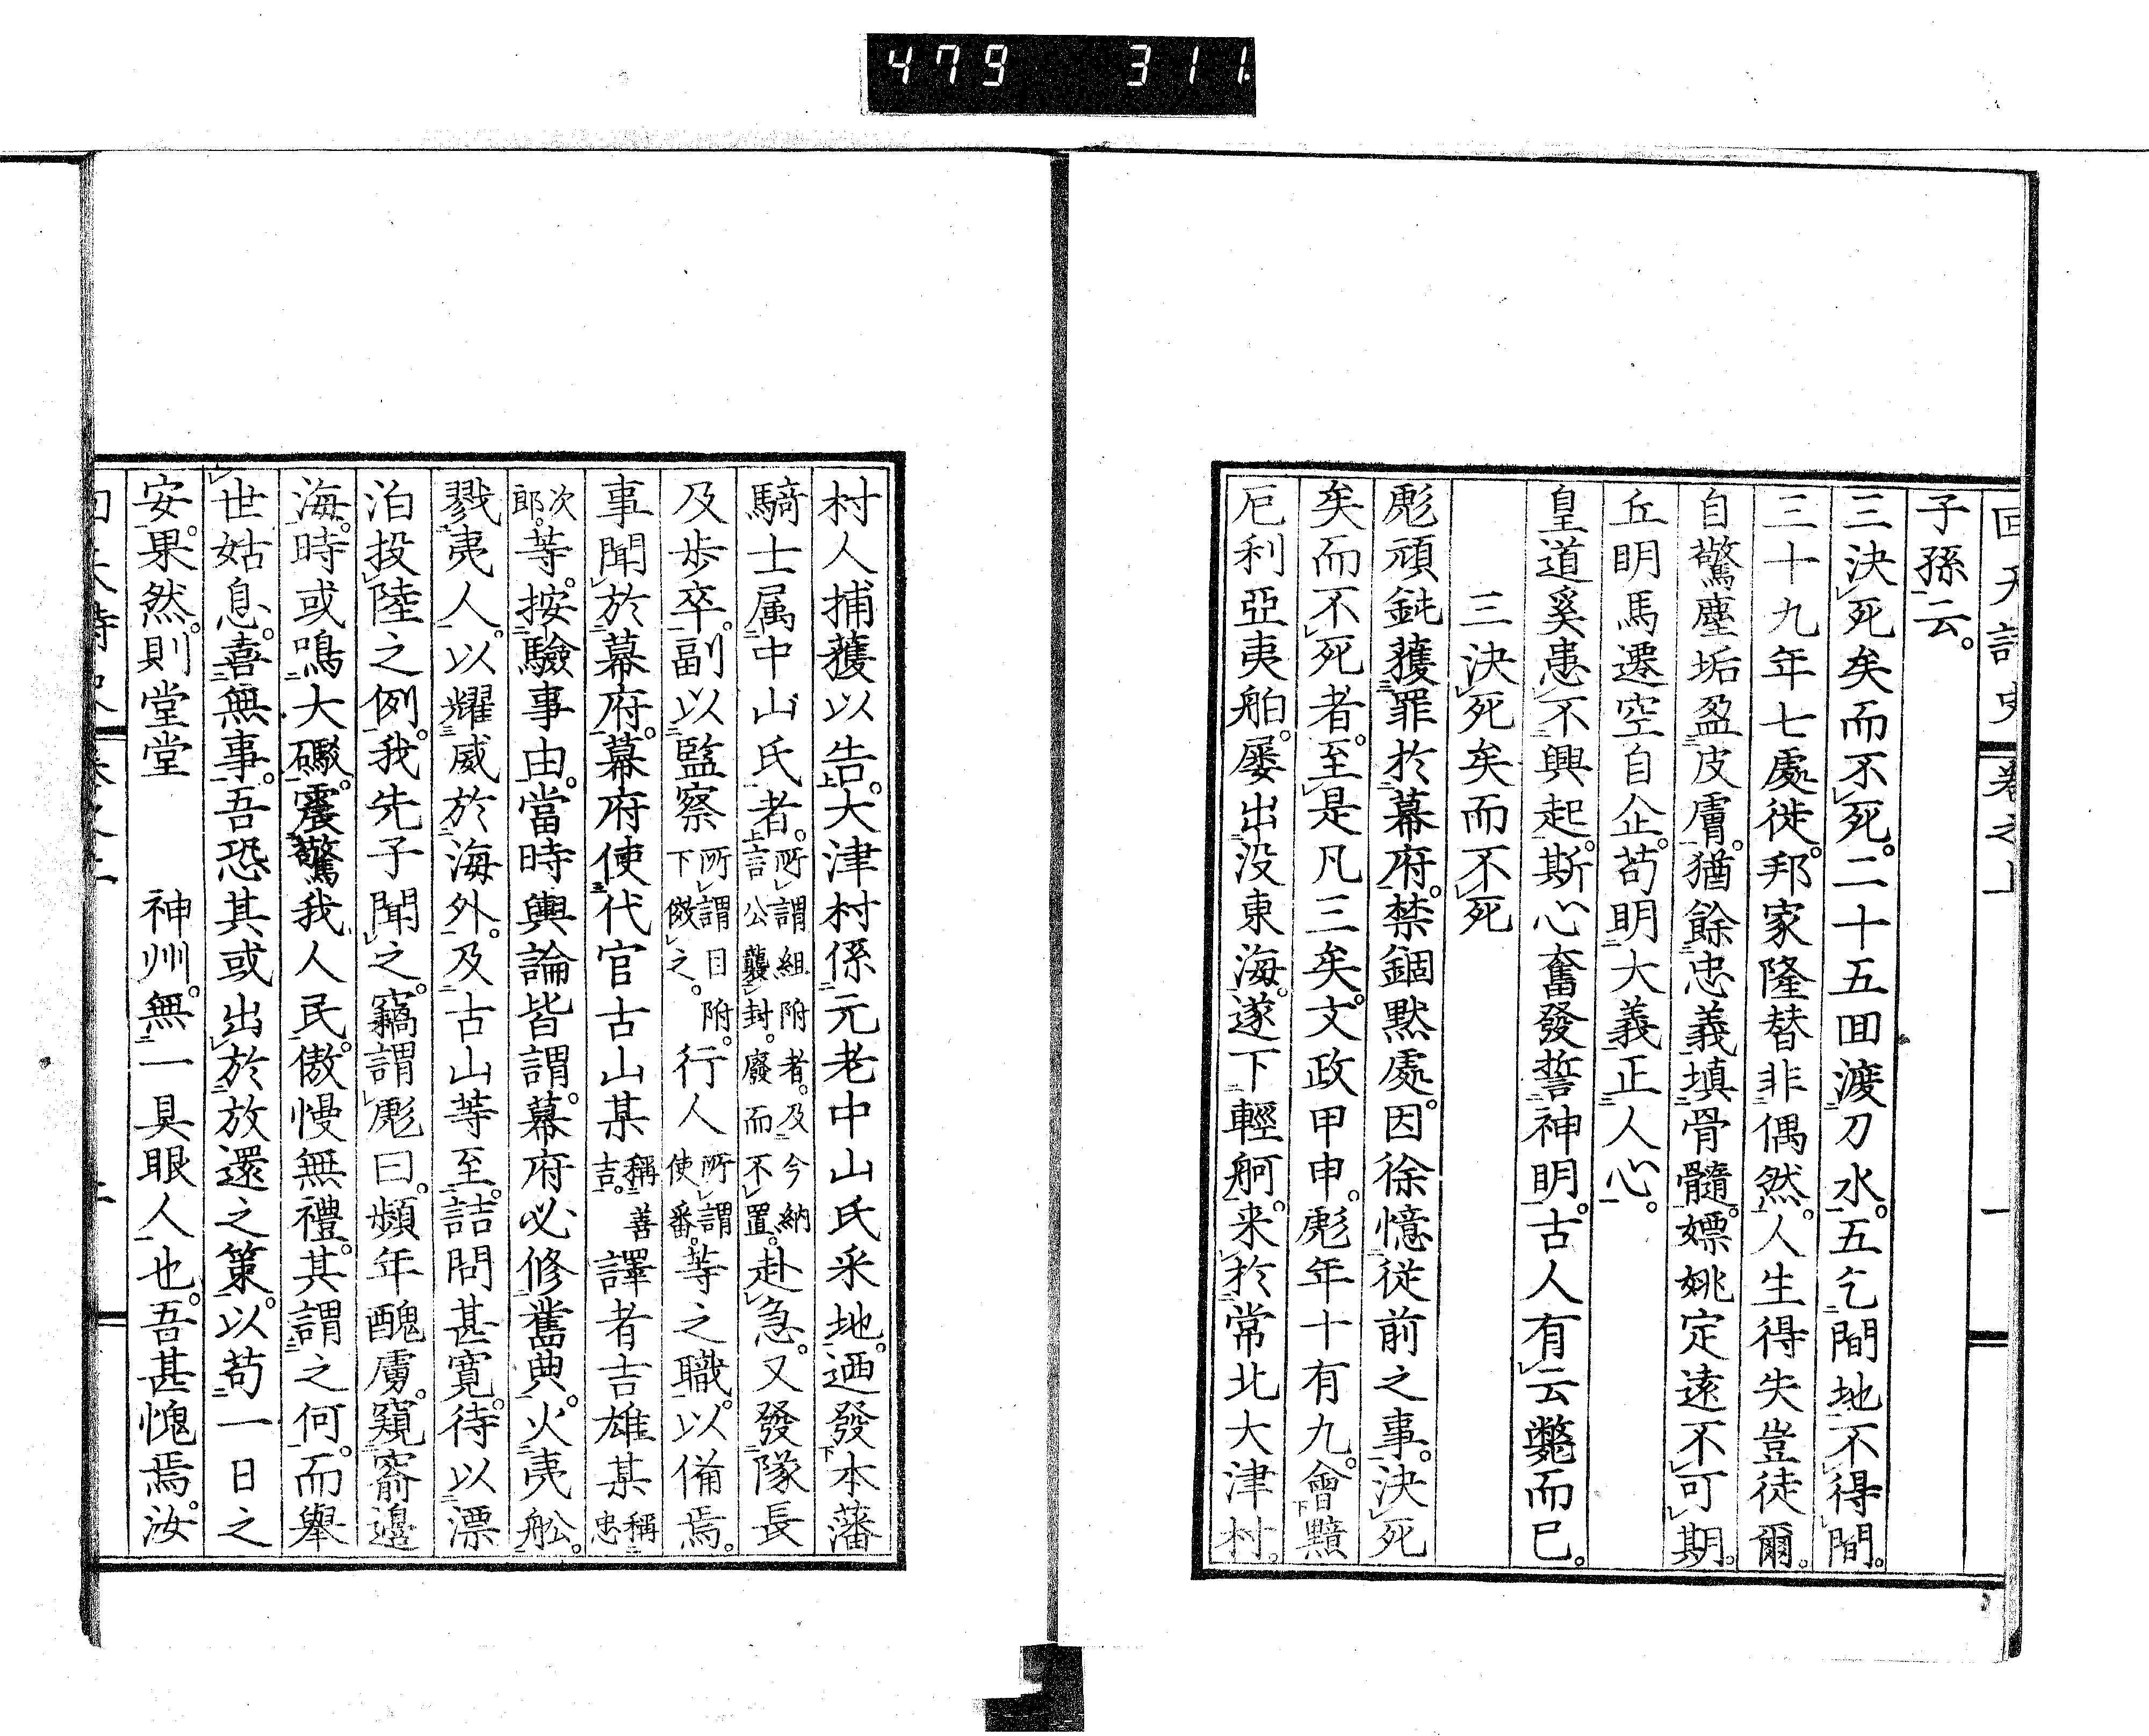 479 311
回天詩史 卷之上 一
子孫云。
三決死矣而不死。二十五回渡刀水。五乞間地不得間。
三十九年七處徙。邦家隆替非偶然。人生得失豈徒爾。
自驚塵垢盈皮膚。猶餘忠義填骨髓。嫖姚定遠不可期。
丘明馬遷空自企。苟明大義正人心。
皇道奚患不興起。斯心奮發誓神明。古人有云斃而已。
三決死矣而不死
彪頑鈍獲罪於幕府。禁錮默處。因徐憶從前之事。決死
矣而不死者。至是凡三矣。文政甲申。彪年十有九。會黠
厄利亞夷舶。屢出没東海。遂下輕舸。来於常北大津村。
村人捕獲以告。大津村係元老中山氏釆地。迺發本藩
騎士属中山氏者。所謂組附者。及今納言公襲封。廢而不置。赴急。又發隊長
及步卒。副以監察所謂目附。下倣之。行人所謂使番。等之職。以備焉。
事聞於幕府。幕府使代官古山某稱善吉。譯者吉雄某稱忠
次郎。等。按驗事由。當時輿論皆謂。幕府必修舊典。火夷舩。
戮夷人。以耀威於海外。及古山等至。詰問甚寛。待以漂
泊投陸之例。我先子聞之。竊謂彪曰。頻年醜虜。窺窬邊
海。時或鳴大礮。震驚我人民。傲慢無禮。其謂之何。而舉
世姑息。喜無事。吾恐其或出於放還之策。以苟一日之
安。果然。則堂堂 神州。無一具眼人也。吾甚愧焉。汝